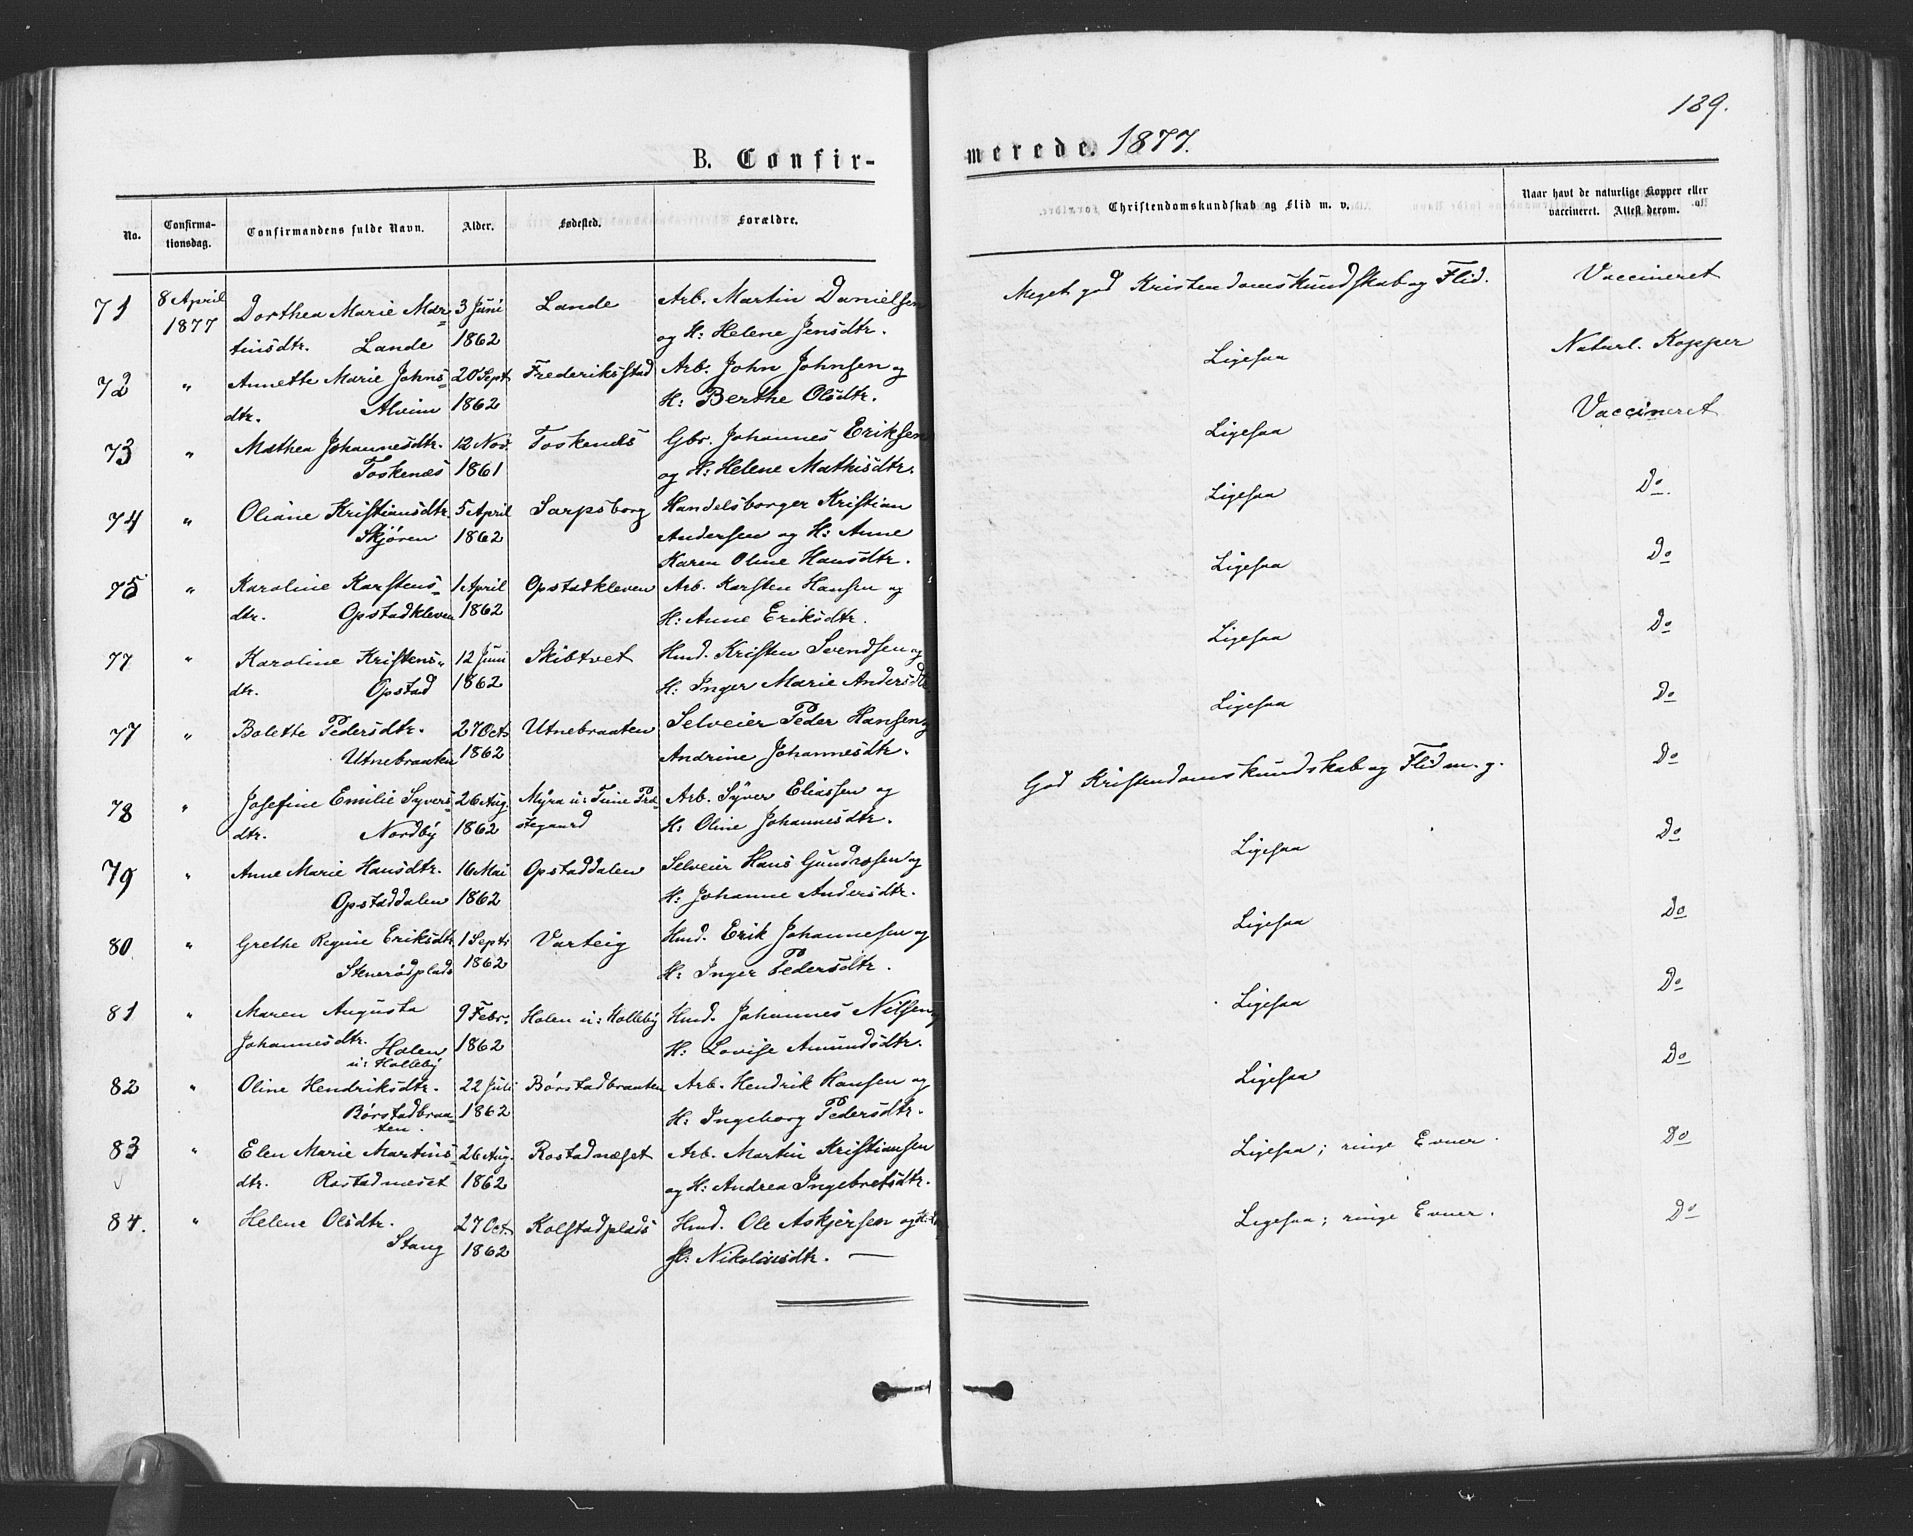 189.
B. Confir-
merede. 1877.
No. Confirma-tionsdag. Confirmandens fulde Navn. Alder. Fødested. Forældre. Christendomskundskab og Flid m. v. Naar havt de naturlige Kopper eller vaccineret. Attest derom.
71 8 April Dorthea Marie Mar- 3 Juni Lande Arb. Martin Danielsen Meget god Kristendomskundskab og Flid. Vaccineret
1877 tinsdtr. Lande 1862 og H: Helene Jensdtr.
72 " Annette Marie Johns- 20 Sept Frederiksstad Arb. John Johnsen og Ligesaa Naturl. Kopper
dtr. Alvim 1862 H: Berthe Olsdtr.
73 " Mathea Johannesdtr. 12 Nov. Toskenæs Gbr. Johannes Eriksen Ligesaa Vaccineret
Toskenæs 1861 og H: Helene Mathisdtr.
74 " Oliane Kristiansdtr. 5 April Sarpsborg Handelsborger Kristian Ligesaa Do.
Skjøren 1862 Andersen og H: Anne
Karen Oline Hansdtr.
75 " Karoline Karstens- 1 April Opstadkleven Arb. Karsten Hansen og Ligesaa Do
dtr. Opstadkleven 1862 H: Anne Eriksdtr.
77 " Karoline Kristens- 12 Juni Skibtvet Hmd. Kristen Svendsen og Ligesaa Do
dtr. Opstad 1862 H: Inger Marie Andersdtr
77 " Bolette Pedersdtr. 27 Oct. Utnebraaten Selveier Peder Hansen Ligesaa Do
Utnebraaten 1862 Andrine Johannesdtr.
78 " Josefine Emilie Syvers- 26 Aug. Myra u: Tune Præ- Arb. Syver Eliassen og God Kristendomskundskab og Flid m. g. Do
dtr. Nordby 1862 stegaard H: Oline Johannesdtr.
79 " Anne Marie Hansdtr. 16 Mai Opstaddalen Selveier Hans Gundersen og Ligesaa Do
Opstaddalen 1862 H: Johanne Andersdtr.
80 " Grethe Regine Eriksdtr. 1 Septr Varteig Hmd. Erik Johannesen og Ligesaa Do
Stenerødplads 1862 H: Inger Pedersdtr.
81 " Maren Augusta 9 Febr. Holen u: Holleby Hmd. Johannes Nilsen Ligesaa Do
Johannesdtr. Holen 1862 H: Lovise Amundsdtr.
u: Holleby
82 " Oline Hendriksdtr. 22 Juli Børstadbraaten Arb. Hendrik Hansen og Ligesaa Do
Børstadbraa- 1862 H: Ingeborg Pedersdtr.
ten.
83 " Elen Marie Martins- 26 Aug. Rostadnæset Arb. Martin Kristiansen Ligesaa; ringe Evner. Do
dtr. Rostadneset 1862 og H: Andrea Ingebretsdtr.
84. " Helene Olsdtr. 27 Oct. Kolstadplads Hmd. Ole Askjersen og H: Ligesaa; ringe Evner. Do
Stang 1862 Nikolaisdtr. —